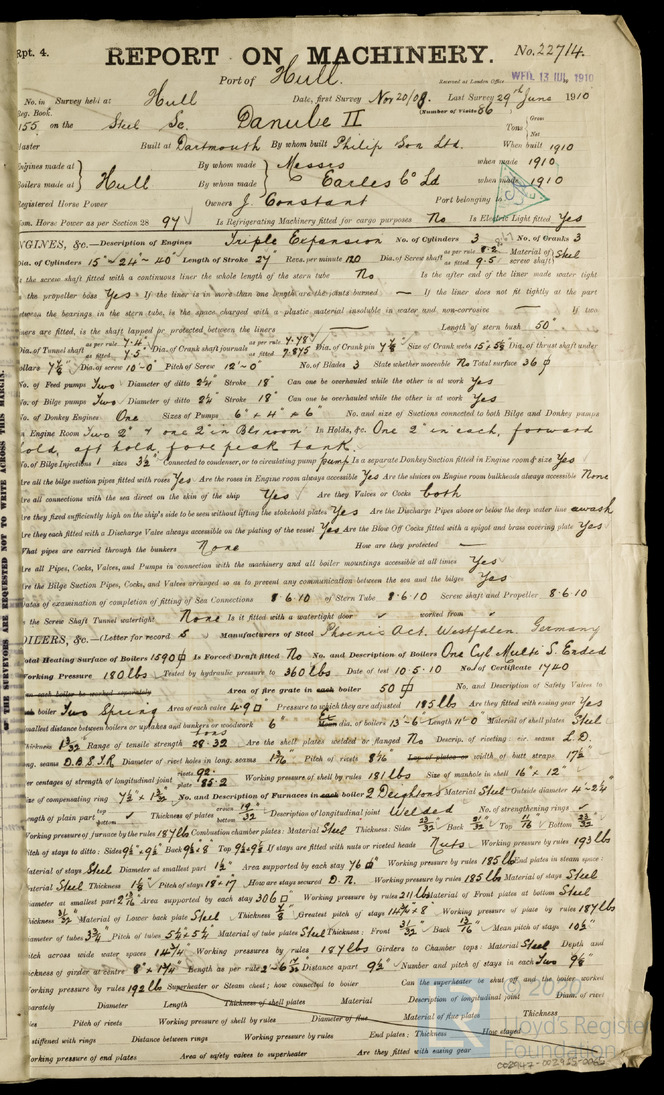 Rpt. 4.
REPORT ON MACHINERY.
No. 22714.
Port of Hull.
Received at London Office WED. 13 JUL 1910
No. in Survey held at Hull Date, first Survey Nov 20/08. Last Survey 29th June 1910
Reg. Book. (Number of Visits 86)
155 on the Steel Sc. Danube II Tons Gross Net
Master Built at Dartmouth By whom built Philip Son Ltd. When built 1910
Engines made at Hull By whom made Messrs when made 1910
Boilers made at By whom made C. Earles Co Ld when made 1910
Registered Horse Power Owners J. Constant Port belonging to
Nom. Horse Power as per Section 28 97 Is Refrigerating Machinery fitted for cargo purposes No Is Electric Light fitted Yes
ENGINES, &c.—Description of Engines Triple Expansion No. of Cylinders 3 No. of Cranks 3
Dia. of Cylinders 15"-24"-40" Length of Stroke 27" Revs. per minute 120 Dia. of Screw shaft as per rule 8.2" as fitted 9.5" Material of screw shaft Steel
Is the screw shaft fitted with a continuous liner the whole length of the stern tube No Is the after end of the liner made water tight
in the propeller boss Yes If the liner is in more than one length are the joints burned — If the liner does not fit tightly at the part
between the bearings in the stern tube, is the space charged with a plastic material insoluble in water and non-corrosive — If two
liners are fitted, is the shaft lapped or protected between the liners — Length of stern bush 50"
Dia. of Tunnel shaft as per rule 7.4" as fitted 7.5" Dia. of Crank shaft journals as per rule 7.78" as fitted 7.875 Dia. of Crank pin 7⅞" Size of Crank webs 15×5½ Dia. of thrust shaft under
collars 7½" Dia. of screw 10'-0" Pitch of Screw 12'-0" No. of Blades 3 State whether moveable No Total surface 36
No. of Feed pumps Two Diameter of ditto 2¼" Stroke 18" Can one be overhauled while the other is at work Yes
No. of Bilge pumps Two Diameter of ditto 2¼" Stroke 18" Can one be overhauled while the other is at work Yes
No. of Donkey Engines One Sizes of Pumps 6" × 4" × 6" No. and size of Suctions connected to both Bilge and Donkey pumps
In Engine Room Two 2" & one 2" in Blr room In Holds, &c. One 2" in each, forward
hold, aft hold, fore peak tank.
No. of Bilge Injections 1 sizes 3½" Connected to condenser, or to circulating pump pump Is a separate Donkey Suction fitted in Engine room & size Yes
Are all the bilge suction pipes fitted with roses Yes Are the roses in Engine room always accessible Yes Are the sluices on Engine room bulkheads always accessible None
Are all connections with the sea direct on the skin of the ship Yes Are they Valves or Cocks both
Are they fixed sufficiently high on the ship's side to be seen without lifting the stokehold plates Yes Are the Discharge Pipes above or below the deep water line awash
Are they each fitted with a Discharge Valve always accessible on the plating of the vessel Yes Are the Blow Off Cocks fitted with a spigot and brass covering plate Yes
What pipes are carried through the bunkers None How are they protected —
Are all Pipes, Cocks, Valves, and Pumps in connection with the machinery and all boiler mountings accessible at all times Yes
Are the Bilge Suction Pipes, Cocks, and Valves arranged so as to prevent any communication between the sea and the bilges Yes
Dates of examination of completion of fitting of Sea Connections 8.6.10 of Stern Tube 8.6.10 Screw shaft and Propeller 8.6.10
Is the Screw Shaft Tunnel watertight None Is it fitted with a watertight door worked from
BOILERS, &c.—(Letter for record S) Manufacturers of Steel Phoenix Act. Westfalen, Germany
Total Heating Surface of Boilers 1590 Is Forced Draft fitted No No. and Description of Boilers One Cyl Multi S. Ended
Working Pressure 180 lbs Tested by hydraulic pressure to 360 lbs Date of test 10.5.10 No. of Certificate 1740
Can each boiler be worked separately Area of fire grate in each boiler 50 No. and Description of Safety Valves to
each boiler Two Spring Area of each valve 4.9 Pressure to which they are adjusted 185 lbs Are they fitted with easing gear Yes
Smallest distance between boilers or uptakes and bunkers or woodwork 6" dia. of boilers 13'-6" Length 11'-0" Material of shell plates Steel
Thickness 1 3/32 Range of tensile strength 28-32 tons Are the shell plates welded or flanged No Descrip. of riveting: cir. seams L.D.
long. seams D.B.S.T.R. Diameter of rivet holes in long. seams 1 3/16 Pitch of rivets 8 1/16 Lap of plates or width of butt straps 17½"
Per centages of strength of longitudinal joint rivets 92. plate 85.2 Working pressure of shell by rules 181 lbs Size of manhole in shell 16" × 12"
Size of compensating ring 7½" × 1 3/32 No. and Description of Furnaces in each boiler 2 Deightons Material Steel Outside diameter 4'-2¼"
Length of plain part top bottom Thickness of plates crown 19/32 bottom Description of longitudinal joint Welded No. of strengthening rings
Working pressure of furnace by the rules 187 lbs Combustion chamber plates: Material Steel Thickness: Sides 23/32 Back 21/32 Top 11/16 Bottom 23/32
Pitch of stays to ditto: Sides 9½×9½ Back 9½×8 Top 9½×9½ If stays are fitted with nuts or riveted heads Nuts Working pressure by rules 193 lbs
Material of stays Steel Diameter at smallest part 1½" Area supported by each stay 76 Working pressure by rules 185 lbs End plates in steam space:
Material Steel Thickness 1⅛ Pitch of stays 18×17 How are stays secured D.N. Working pressure by rules 185 lbs Material of stays Steel
Diameter at smallest part Area supported by each stay 306 Working pressure by rules 211 lbs Material of Front plates at bottom Steel
Thickness 31/32 Material of Lower back plate Steel Thickness 7/8 Greatest pitch of stays 14¾×8 Working pressure of plate by rules 187 lbs
Diameter of tubes 3¾" Pitch of tubes 5¼×5¼ Material of tube plates Steel Thickness: Front 31/32 Back 13/16 Mean pitch of stays 10½"
Pitch across wide water spaces 14¾" Working pressures by rules 187 lbs Girders to Chamber tops: Material Steel Depth and
thickness of girder at centre 8" × 1¾" Length as per rule Distance apart 9½" Number and pitch of stays in each Two 9⅜"
Working pressure by rules 192 lbs Superheater or Steam chest; how connected to boiler Can the superheater be shut off and the boiler worked
separately Diameter Length Thickness of shell plates Material Description of longitudinal joint Diam. of rivet
holes Pitch of rivets Working pressure of shell by rules Diameter of flue Material of flue plates Thickness
If stiffened with rings Distance between rings Working pressure by rules End plates: Thickness How stayed
Working pressure of end plates Area of safety valves to superheater Are they fitted with easing gear
THE SURVEYORS ARE REQUESTED NOT TO WRITE ACROSS THIS MARGIN.
LR
© 2020
Lloyd's Register
Foundation